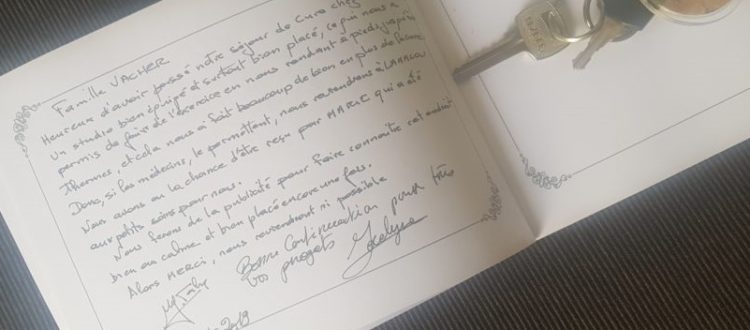 Famille VACHER
Heureux d'avoir passé notre séjour de Cure chez
un studio bien équipé et surtout bien placé, ce qui nous a
permis de faire de l'exercice en nous rendant à pieds jusqu'aux
Thermes, et cela nous a fait beaucoup de bien en plus de la cure.
Donc, si les médecins, le permettent, nous reviendrons à LAMALOU
Nous avons eu la chance d'être reçu par MARIE qui a été
aux petits soins pour nous.
Nous ferons de la publicité pour faire connaître cet endroit
bien au calme et bien placé encore une fois.
Alors MERCI, nous reviendront si possible
Bonne Continuation pour très
vos projets
Jocelyne
2019